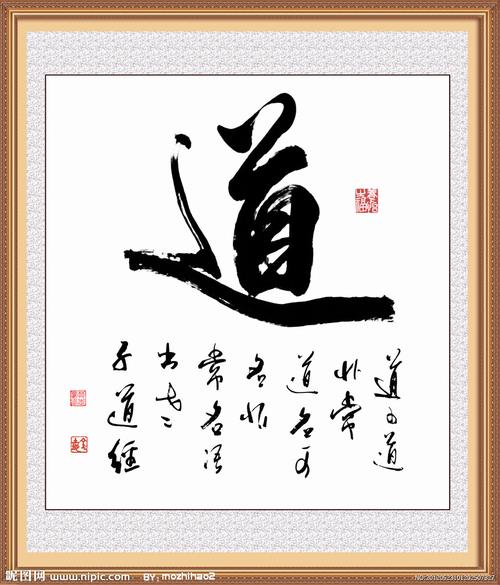 道
道可道
非常
道名可
名非
常名语
出老
子道經
昵图网 www.nipic.com BY: mozhihao2